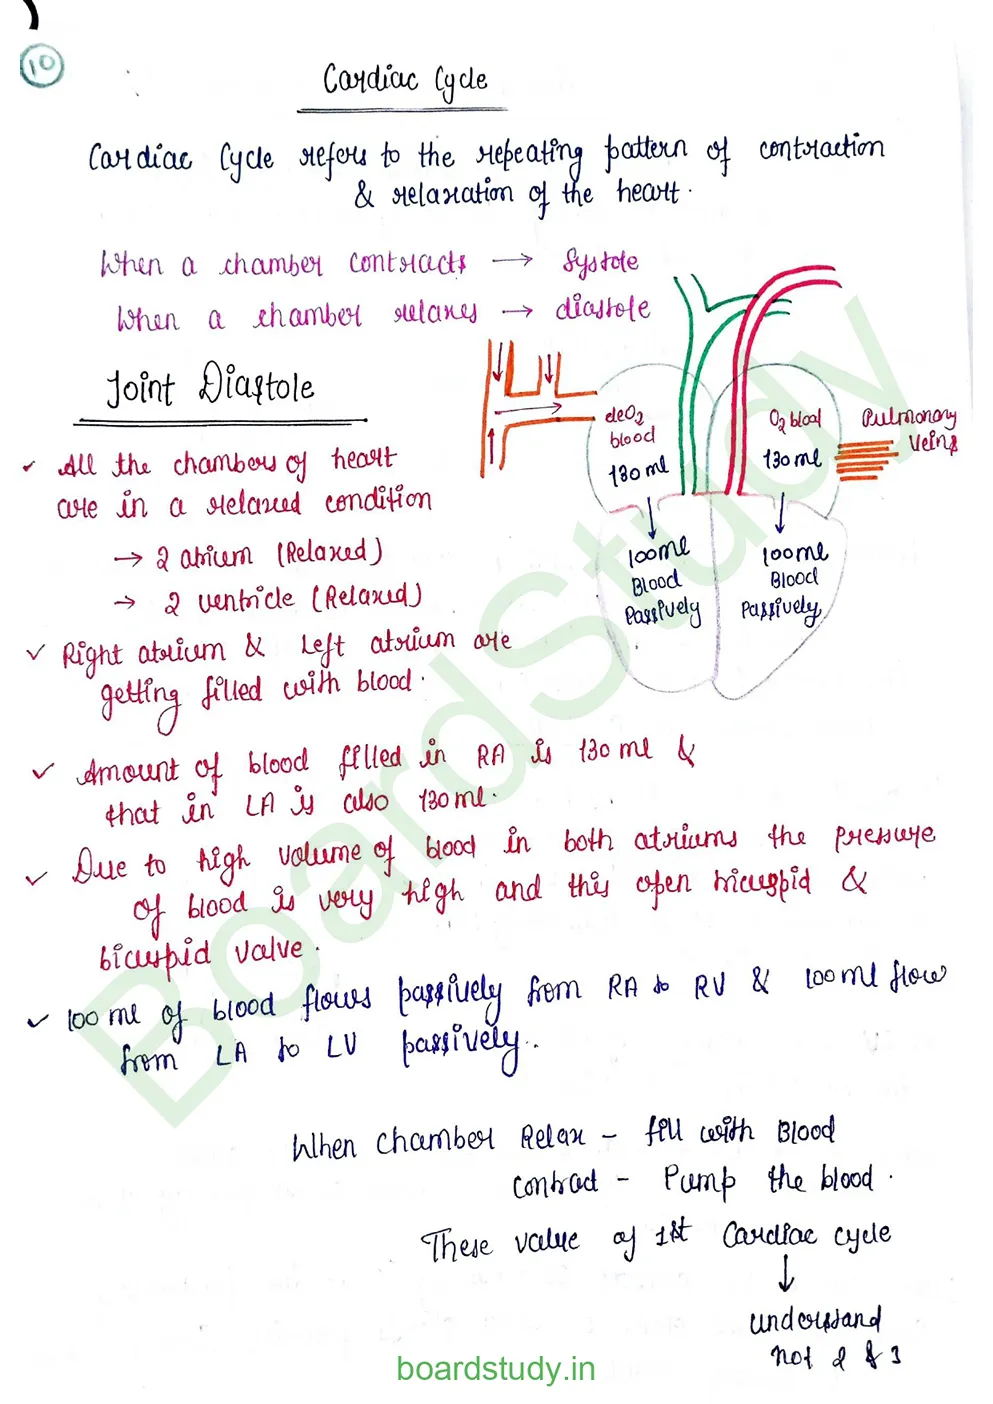 10
Cardiac Cycle
Cardiac Cycle refers to the repeating pattern of contraction
& relaxation of the heart.
When a chamber contracts → Systole
When a chamber relaxes → diastole
Joint Diastole
✓ All the chambers of heart
are in a relaxed condition
→ 2 atrium (Relaxed)
→ 2 ventricle (Relaxed)
✓ Right atrium & Left atrium are
getting filled with blood.
deO2
blood
130 ml
O2 blood
130 ml
Pulmonary
Veins
100ml
Blood
Passively
100ml
Blood
Passively
✓ Amount of blood filled in RA is 130 ml &
that in LA is also 130 ml.
✓ Due to high volume of blood in both atriums the pressure
of blood is very high and this open tricuspid &
bicuspid valve.
✓ 100 ml of blood flows passively from RA to RV & 100 ml flow
from LA to LV passively.
When chamber Relax - fill with Blood
Contract - Pump the blood.
These value of 1st Cardiac cycle
↓
understand
not 2 & 3
BoardStudy
boardstudy.in